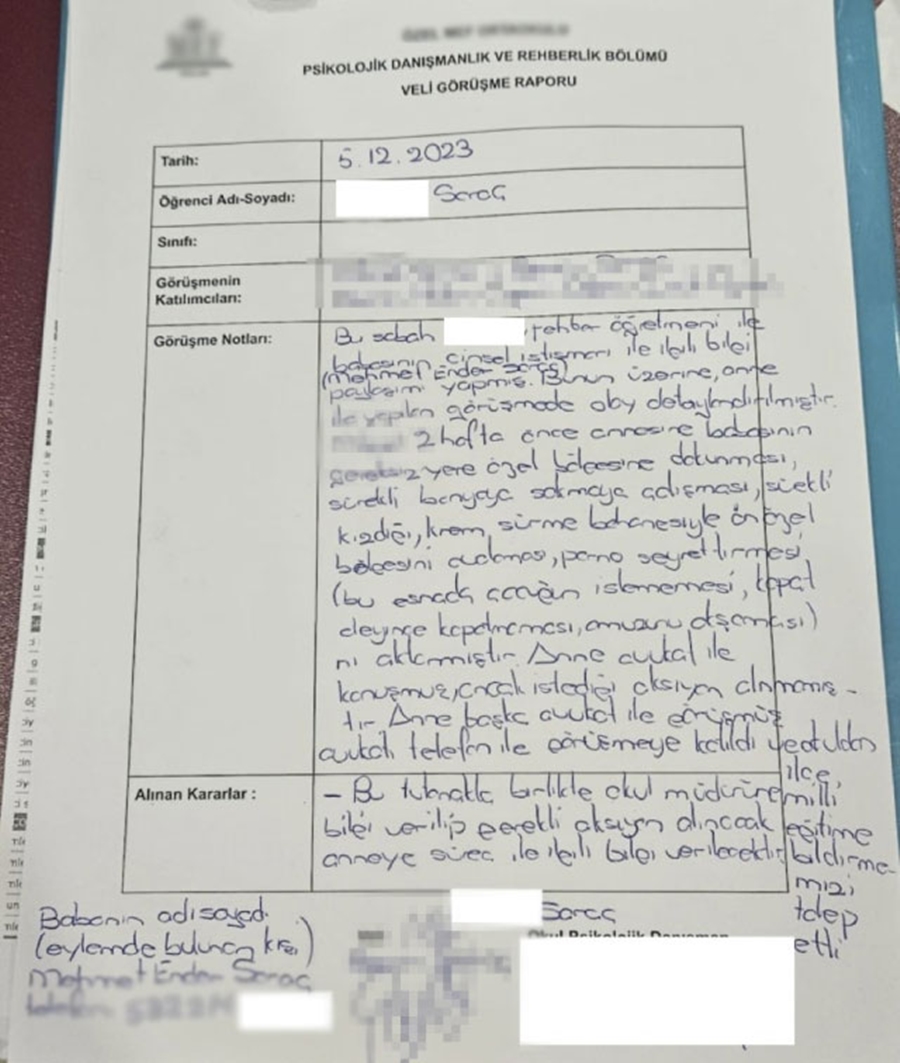 PSİKOLOJİK DANIŞMANLIK VE REHBERLİK BÖLÜMÜ
VELİ GÖRÜŞME RAPORU
Tarih: 5.12.2023
Öğrenci Adı-Soyadı: Saraç
Sınıfı:
Görüşmenin
Katılımcıları:
Görüşme Notları: Bu sabah rehber öğretmeni ile
babasının cinsel istismarı ile ilgili bilgi
(Mehmet Ender Saraç)
paylaşımı yapmış. Bunun üzerine, anne
ile yapılan görüşmede olay detaylandırılmıştır.
2 hafta önce annesine babasının
gereksiz yere özel bölgesine dokunması,
sürekli banyoya sokmaya çalışması, sürekli
kızdığı, krem sürme bahanesiyle ön özel
bölgesini, porno seyrettirmesi
(bu esnada çocuğun istememesi, kapat
deyince kapatmaması,)
nı aktarmıştır. Anne avukat ile
konuşmuş, ancak istediği aksiyon alınmamış-
tır. Anne başka avukat ile görüşmüş
avukatı telefon ile görüşmeye katıldı ve okuldan
ilçe
milli
eğitime
bildirme-
mizi
talep
etti
Alınan Kararlar : - Bu tutanakla birlikte okul müdürüne
bilgi verilip gerekli aksiyon alınacak
anneye süreç ile ilgili bilgi verilecektir.
Babanın adı soyadı
(eylemde bulunan kişi)
Mehmet Ender Saraç
telefon
Saraç